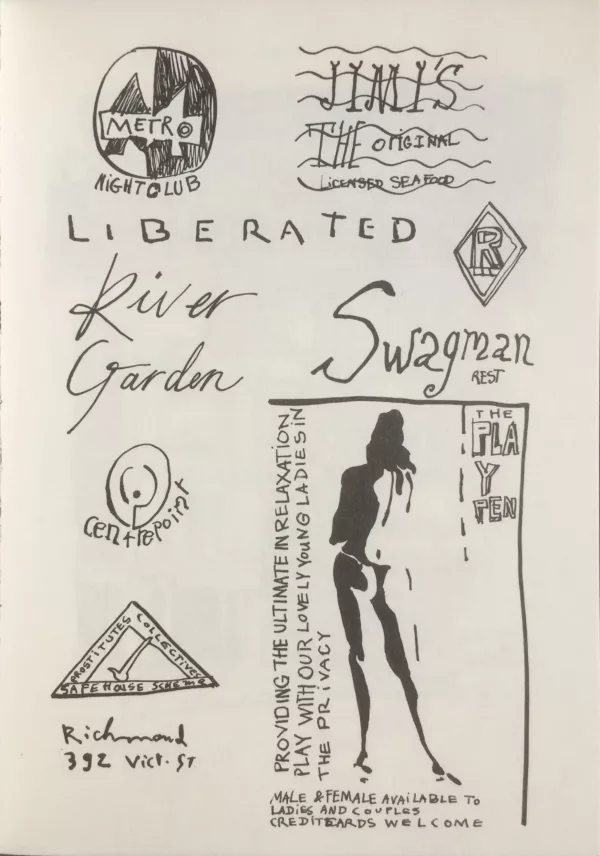 METRO
NIGHTCLUB
JIMI'S
THE ORIGINAL
LICENSED SEAFOOD
LIBERATED
R
River
Garden
Swagman
REST
centrepoint
PROSTITUTES COLLECTIVE
SAFE HOUSE SCHEME
Richmond
392 Vict. ST
THE
PLA
Y
PEN
PROVIDING THE ULTIMATE IN RELAXATION
PLAY WITH OUR LOVELY YOUNG LADIES IN
THE PRIVACY
MALE & FEMALE AVAILABLE TO
LADIES AND COUPLES
CREDITCARDS WELCOME